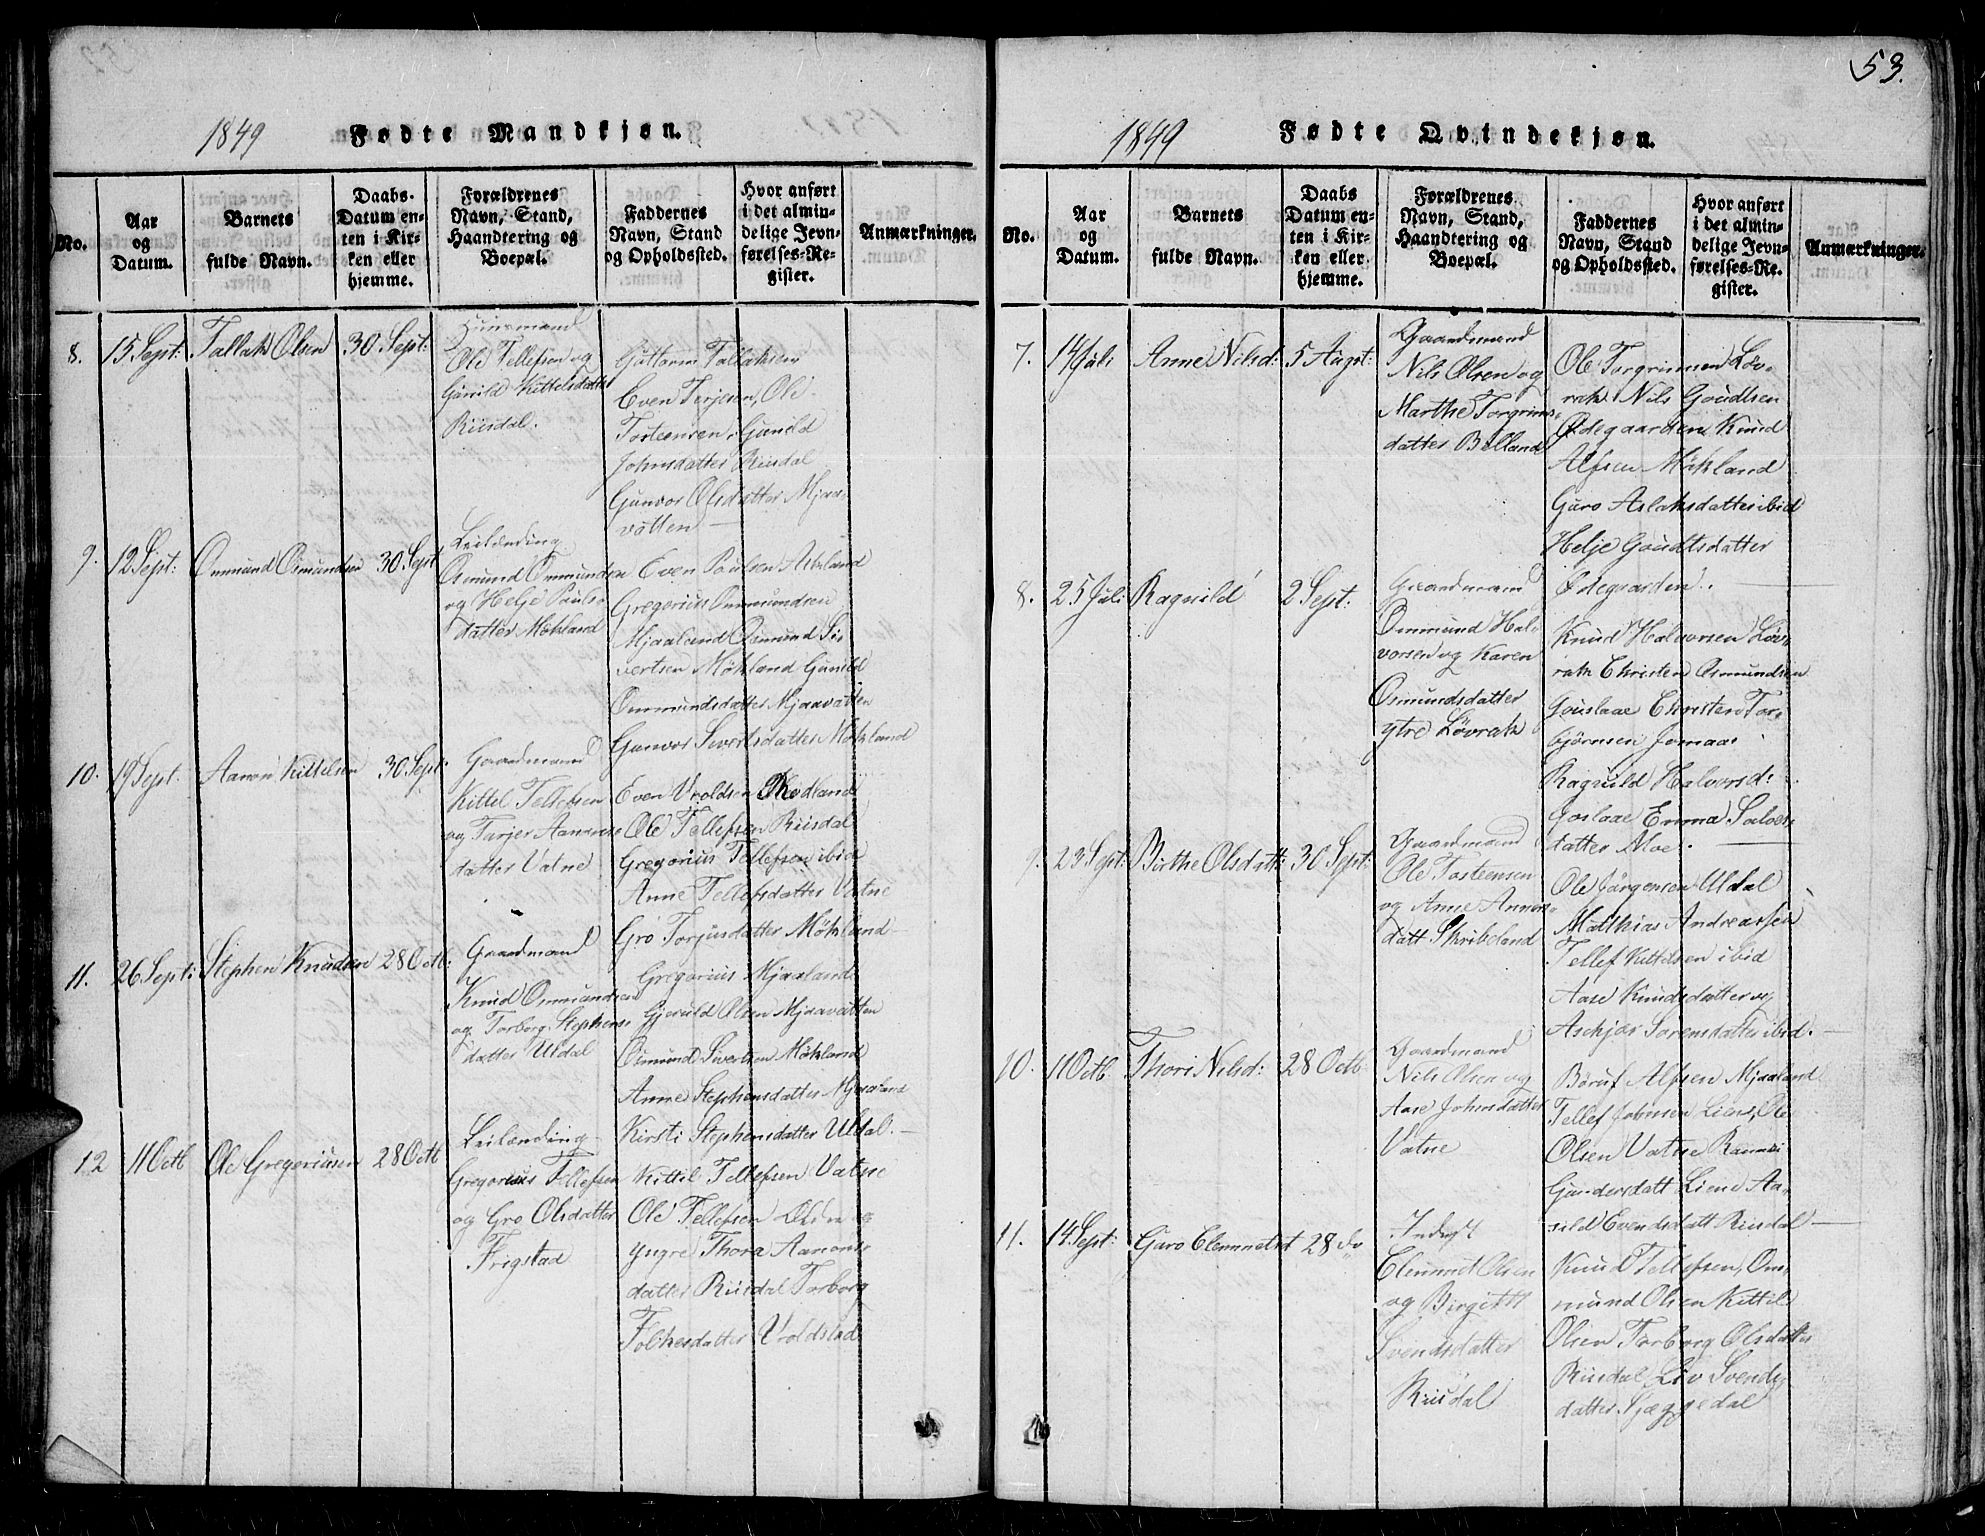 53.
1849 Fødte Mandkjøn.
No.
Aar
og
Datum.
Barnets
fulde Navn.
Daabs-
Datum en-
ten i Kir-
ken eller
hjemme.
Forældrenes
Navn, Stand,
Haandtering og
Boepæl.
Faddernes
Navn, Stand
og Opholdssted.
Hvor anført
i det almin-
delige Jevn-
førelses-Re-
gister.
Anmærkninger.
8. 15 Sept: Tallak Olsen 30 Sept:
Huusmand
Ole Tellefsen og
Gunild Kittelsdatter
Riisdal.
Guttorm Tallaksen
Even Terjesen, Ole
Tosteensen, Gunild
Johnsdatter Riisdal
Gunvor Olsdatter Mjaa-
vatten
9. 12 Sept: Ommund Osmundsen 30 Sept
Leilænding
Osmund Ommundsen
og Helje Pauls-
datter Mökland
Even Paulsen Askland
Gregorius Ommundsen
Mjaaland Osmund Si-
vertsen Mökland Gunild
Ommundsdatter Mjaavatten
Gunvor Sivertsdatter Mökland
10. 19 Sept. Aanon Kittelsen 30 Sept.
Gaardmand
Kittel Tellefsen
og Torjer Aanons-
datter Vatne
Even Vroldsen Rodland
Ole Tellefsen Riisdal
Gregorius Tellefsen ibid
Anne Tellefsdatter Vatne
Gro Torjusdatter Mökland
11. 26 Sept: Stephen Knudsen 28 Octb:
Gaardmand
Knud Ommundsen
og Torborg Stephens-
datter Uldal
Gregorius Mjaaland
Gjeruld Olsen Mjaavatten
Osmund Sivertsen Mökland
Anne Stephensdatter Mjaaland
Kirsti Stephensdatter Uldal.
12 11 Octb Ole Gregoriusen 28 Octb
Leilænding
Gregorius Tellefsen
og Gro Olsdatter
Frigstad
Kittil Tellefsen Vatne
Ole Tellefsen Eldre og
yngre Thora Aanons-
datter Riisdal Torborg
Folkesdatter Vroldstad
1849 Fødte Qvindekjøn.
No.
Aar
og
Datum.
Barnets
fulde Navn.
Daabs
Datum en-
ten i Kir-
ken eller
hjemme.
Forældrenes
Navn, Stand,
Haandtering og
Boepæl.
Faddernes
Navn, Stand
og Opholdssted.
Hvor anført
i det almin-
delige Jevn-
førelses-Re-
gister.
Anmærkninger.
7. 14 Juli Anne Nilsd: 5 Augst:
Gaardmand
Nils Olsen og
Marthe Torgrims-
datter Belland
Ole Torgrimsen Löv-
rak Nils Goudtsen
Ødegaarden Knud
Alfsen Mökland
Guro Aslaksdatter ibid
Helje Goudtsdatter
Ødegaarden.
8. 25 Juli Ragnild 2 Sept:
Gaardmand
Ommund Hal-
vorsen og Karen
Osmundsdatter
ytre Lövrak
Knud Halvorsen Löv-
rak Christen Osmundsen
Gouslaae Christen Tor-
bjørnsen Jomaas
Ragnild Halvorsd:
Goslaae Emma Salves-
datter Moe.
9. 23 Sept: Birthe Olsdatt: 30 Sept:
Gaardmand
Ole Tosteensen
og Anne Annens-
datt Skribeland
Ole Jörgensen Uldal
Matthias Andreassen
Tellef Kittilsen ibid
Aase Knudsdatter og
Aschjær Sorensdatter ibid.
10. 11 Octb. Thori Nilsd: 28 Octb
Gaardmand
Nils Olsen og
Aase Johnsdatter
Vatne
Böruf Alfsen Mjaaland
Tellef Jobnsen Liene, Ole
Olsen Vatne
Gundersdatt Liene Aa-
sild Evendsdatt Riisdal
11. 14 Sept: Guro Clemmetsd 28 do
Inderst
Clemmet Olsen
og Birgitt
Svendsdatter
Riisdal
Knud Tellefsen, Om-
mund Olsen Kittil
Olsen Torborg Olsdatter
Riisdal Liv Svends-
datter Sjæggedal